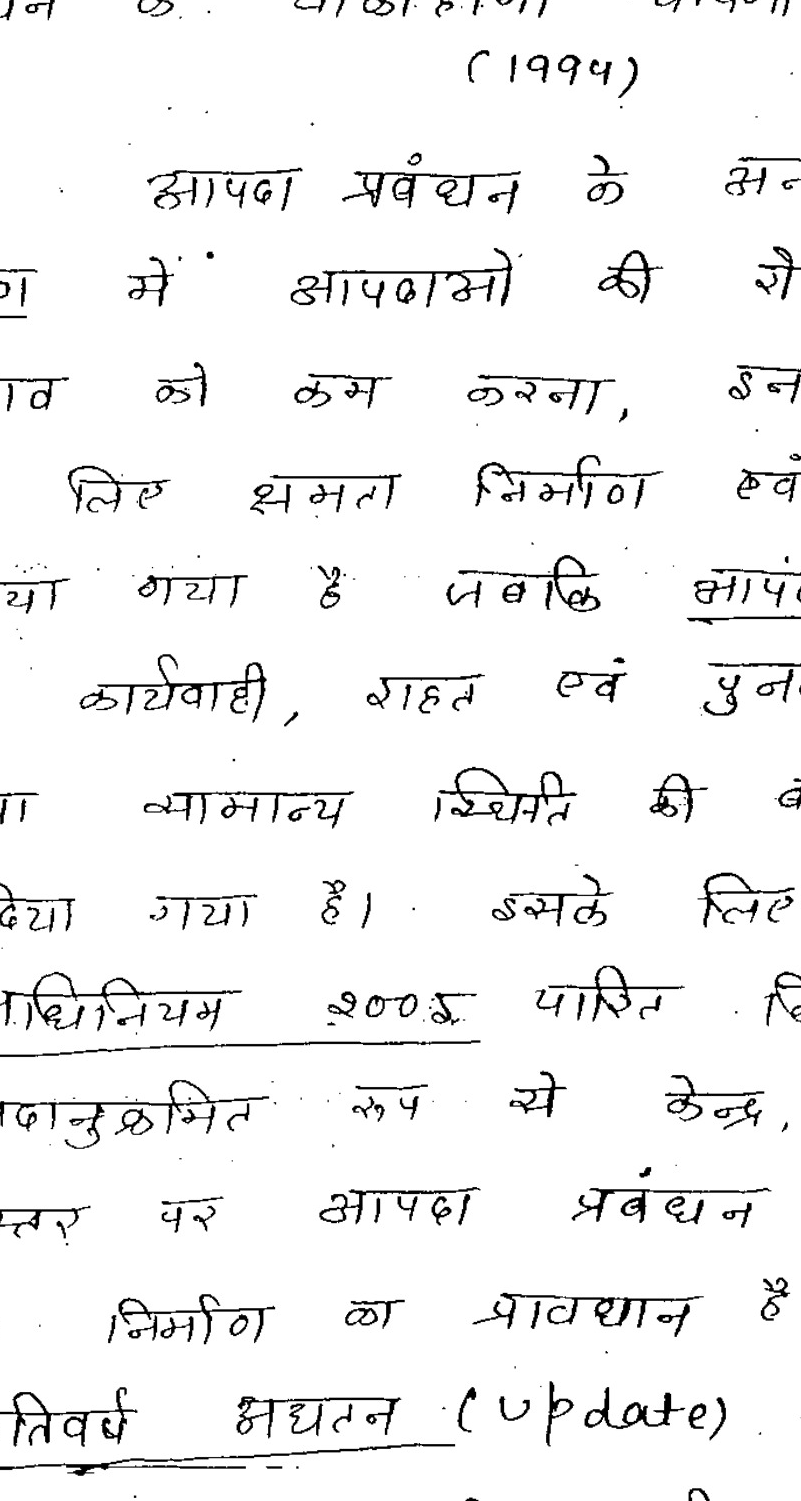 (1994)
आपदा प्रबंधन के
में आपदाओं की
को कम करना,
लिए क्षमता निर्माण एवं
गया है जबकि
कार्यवाही, राहत एवं
सामान्य स्थिति की
गया है। इसके लिए
2005 पारित
रूप से केन्द्र,
पर आपदा प्रबंधन
निर्माण का प्रावधान है
अद्यतन (Update)